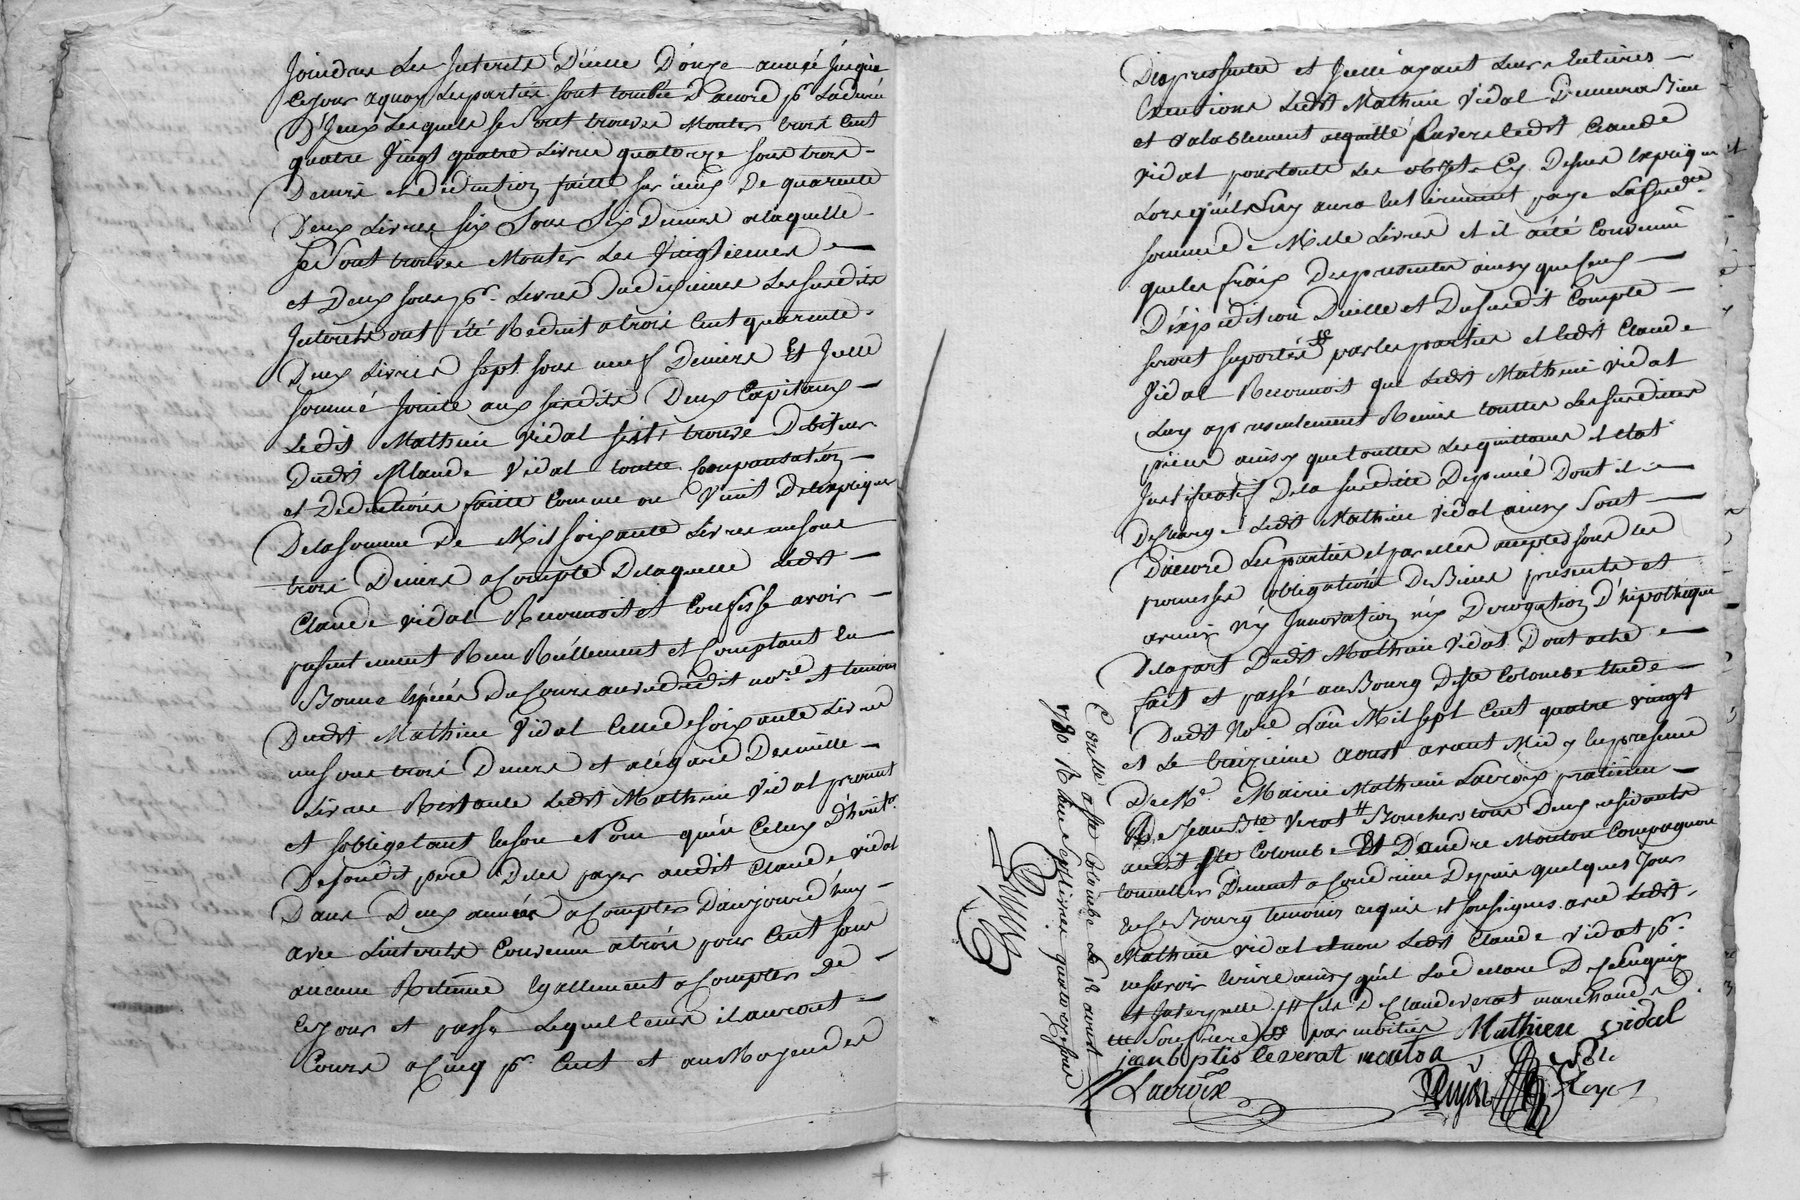 Joindres les Interets D'icelle D'onze année Jusqu'a
Ce jour a quoy les parties sont tombée D'acord pr. la durée
D'Iceux lesquels se sont trouves Monter trois Cent
quatre Vingt quatre Livres quatorze sous trois
Deniers et deduction faitte sur iceux De quarente
Deux Livres six sous six Deniers alaquelle
se sont trouves Monter les Vingtiemes
et Deux sous pr. Livres du dixieme les susdits
Interets ont été Reduit a trois Cent quarente
Deux Livres sept sous neuf Deniers Et Icelle
somme Jointe aux susdits Deux Capitaux
Ledit Mathieu Vidal s'est trouvé Debiteur
Dudit Claude Vidal toutte Compansation
et Deductions faitte Comme on Vient D'expliquer
Delasomme de Mil soixante Livres un sous
trois Deniers aCompte Delaquelle Ledt
Claude Vidal Reconnoit et Confesse avoir
presentement Reçu Réellement et Comptant En
Bonne Espéces Du Cours auvu dudit nore. et temoins
Dudit Mathieu Vidal Celle de soixante Livres
un sous trois Deniers et alégard Des mille
Livres Restante Ledt Mathieu Vidal promet
et soblige tant En son Nom qu'en Celuy D'heritr.
De son dit pere De les payer audit Claude Vidal
Dans Deux années aCompter D'aujourd'huy
avec L'interets Convenu a trois pour Cent sans
aucune Retenüe Egallement aCompter de
Ce jour et passé Lequel tems ils auront
Cours a Cinq pr. Cent et au Moyen des
Des presentes et Icelle ayant Leurs Entieres
Executions Ledt Mathieu Vidal Demeura Bien
et Valablement acquitté Envers Ledt Claude
Vidal pour toute les objet Cy Dessus Expliquer
Lorsqu'il Luy aura Entierement paye La susdte
somme de Mille Livres et il aété Convenu
que les fraix Des presentes ainsy que Ceux
D'éxpedition D'icelle et Du susdit Compte
seront suportés par les parties et Ledt Claude
Vidal Reconnoit que Ledt Mathieu Vidal
Luy apresentement Remis touttes les susdittes
pieces ainsy que touttes les quittances et Etat
Justificatif Dela susditte Depense Dont il
Decharge Ledt Mathieu Vidal ainsy sont
D'acord Les parties et par elles accepté sous les
promesses obligations De Biens presents et
avenir ny Innovation ny Derogation D'hipotheque
Dela part Dudt Mathieu Vidal Dont acte
fait et passé au Bourg De ste Colombe Etude
Dudit Nore L'an Mil sept Cent quatre Vingt
et Le treizieme aoust avant Midy En presence
De Mr. Mathieu Lacroix praticien
De Jean Bte Verat # Boucher tous Deux residants
audit ste Colombe Et D'andre Mouton Compagnon
tonnellier Demeurt a Condrieu Depuis quelques Jours
En Ce Bourg temoins requis et soussignes avec Ledt
Mathieu Vidal et non Ledt Claude Vidal pr.
ne savoir Ecrire ainsy qu'il La declaré De ce Enquis
et Interpellé # fils De Claude Verat marchand
Mathieu vidal
jean baptiste verat mouton
Lacroix
Controlle a ste Colombe le 18 aoust
1780 R